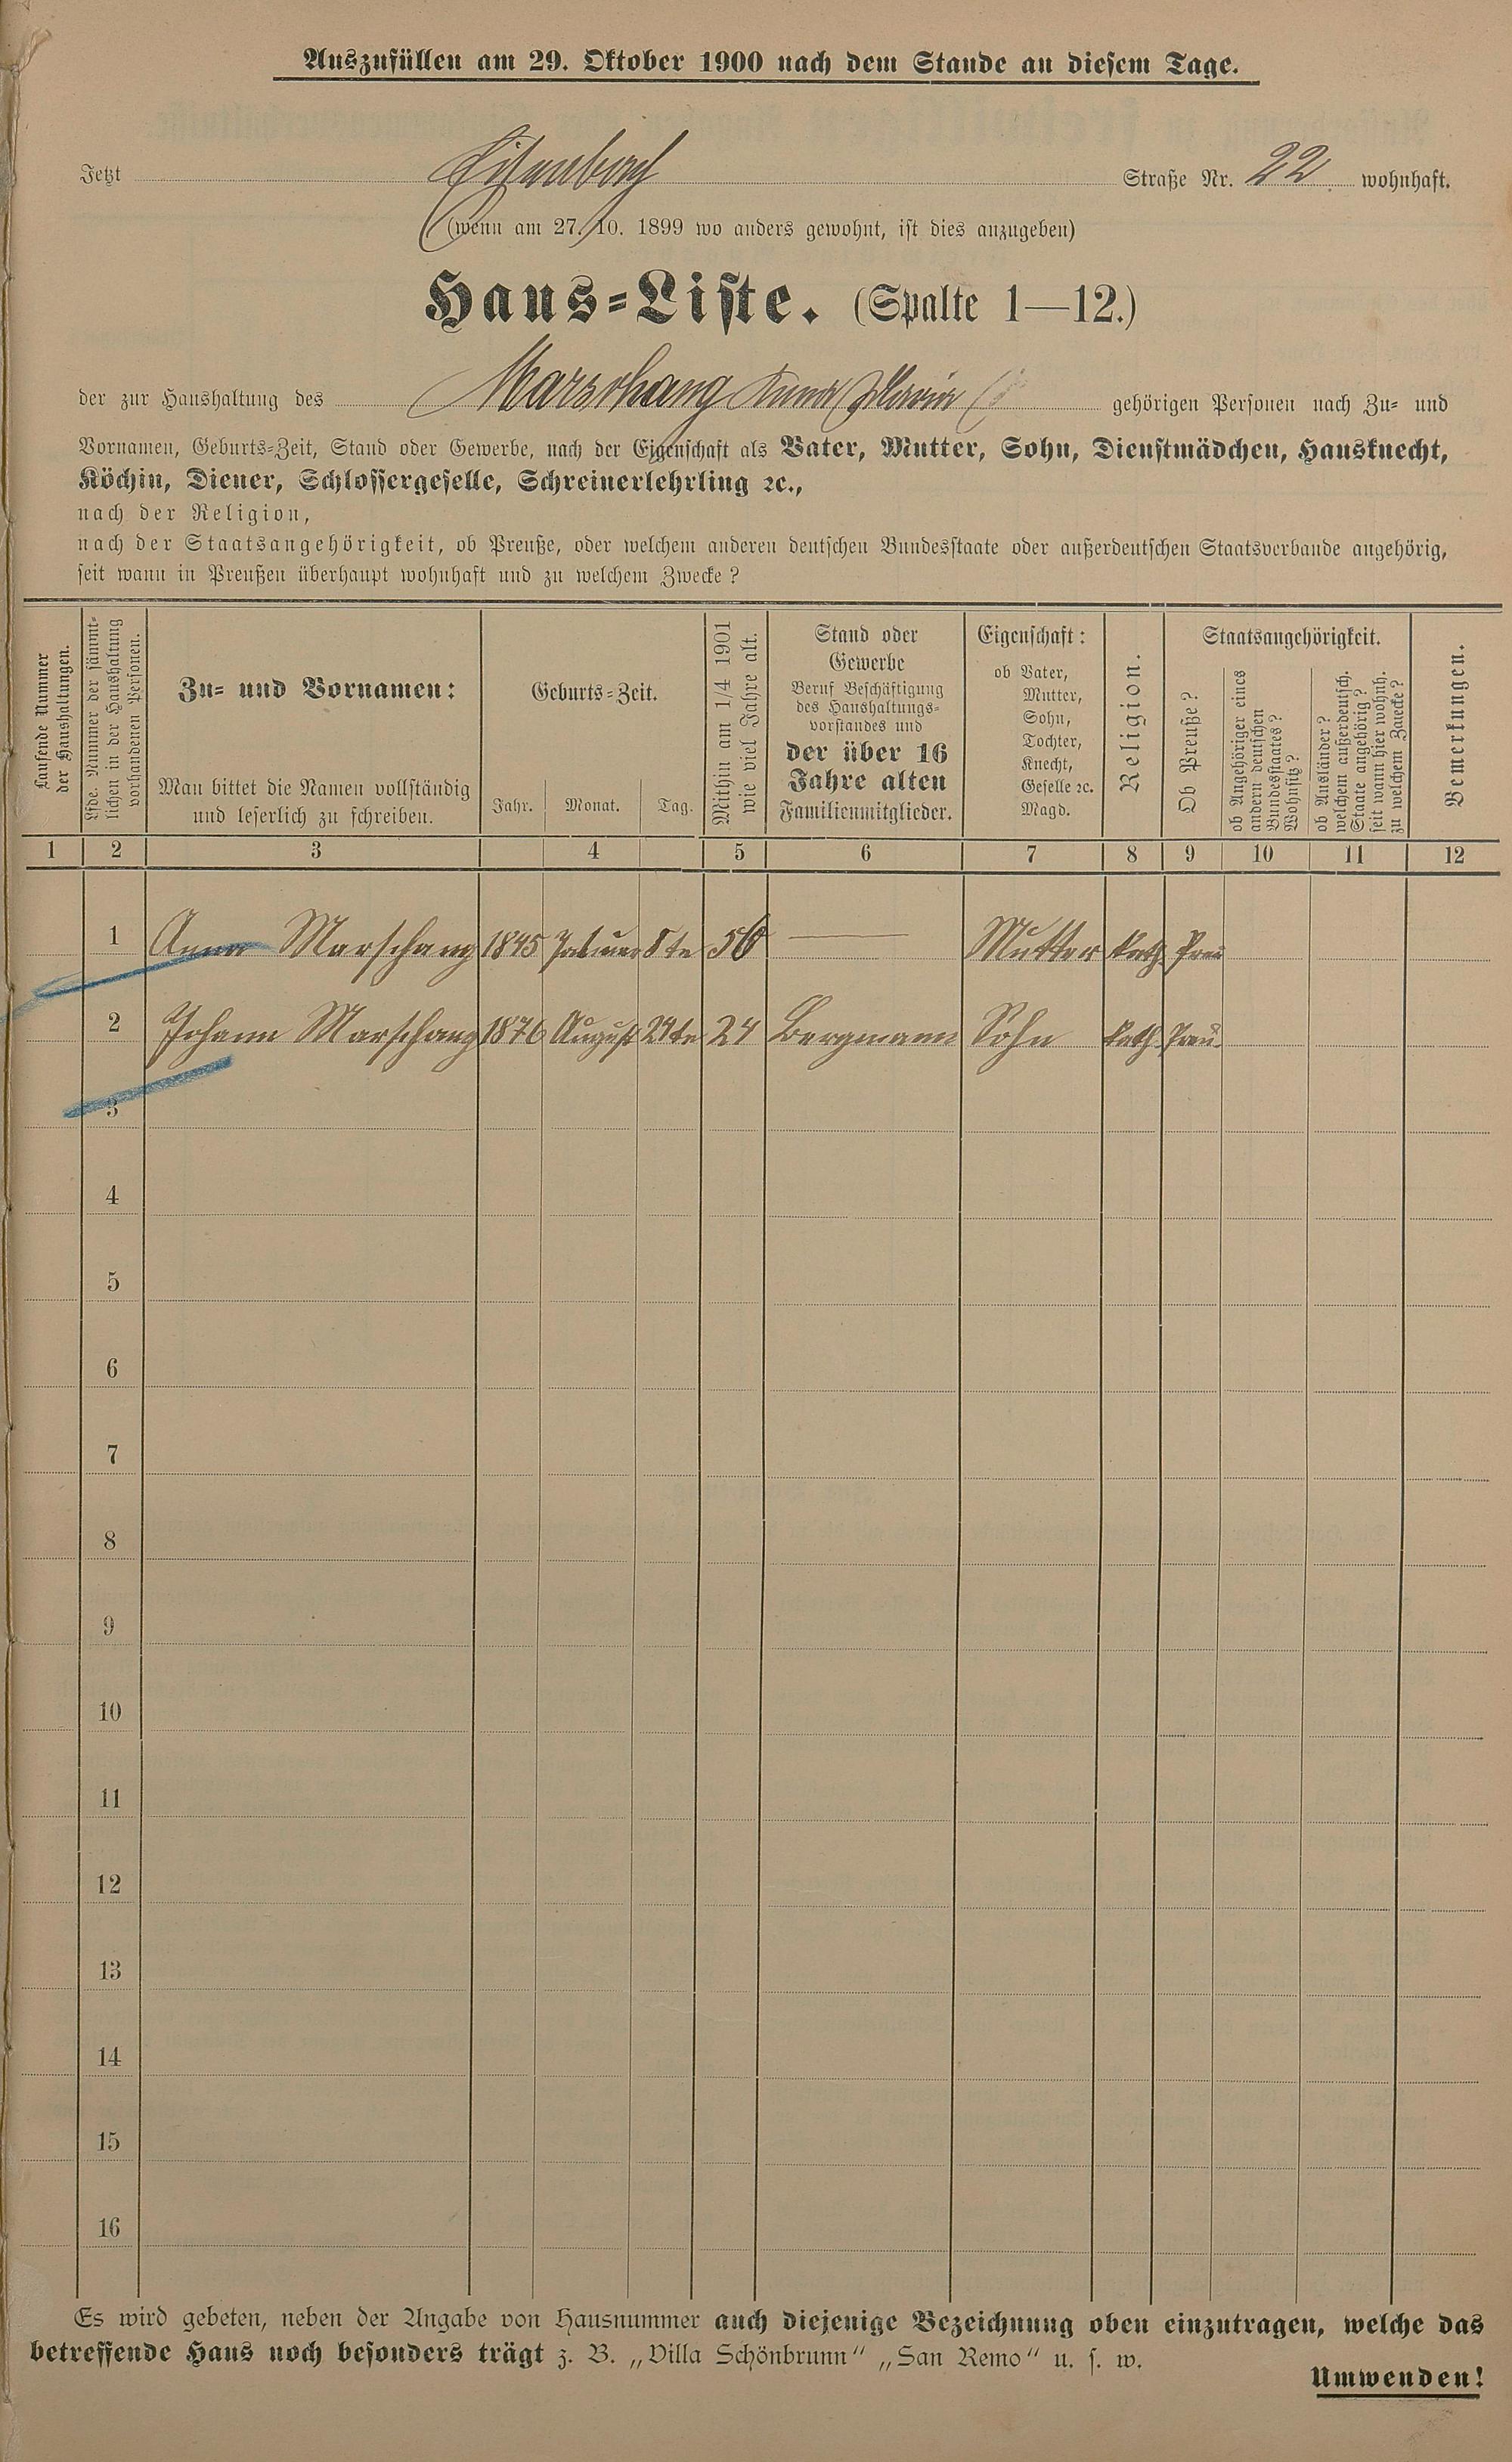 Auszufüllen am 29. Oktober 1900 nach dem Stande an diesem Tage.
Jetzt Straße Nr. 22. wohnhaft.
(wenn am 27. 10. 1899 wo anders gewohnt, ist dies anzugeben)
Haus-Liste. (Spalte 1—12.)
der zur Haushaltung des Marschang Anna Maria gehörigen Personen nach Zu- und
Vornamen, Geburts-Zeit, Stand oder Gewerbe, nach der Eigenschaft als Vater, Mutter, Sohn, Dienstmädchen, Hausknecht,
Köchin, Diener, Schlossergeselle, Schreinerlehrling ꝛc.,
nach der Religion,
nach der Staatsangehörigkeit, ob Preuße, oder welchem anderen deutschen Bundesstaate oder außerdeutschen Staatsverbande angehörig,
seit wann in Preußen überhaupt wohnhaft und zu welchem Zwecke?
Laufende Nummer
der Haushaltungen.
Lfde. Nummer der sämmt-
lichen in der Haushaltung
vorhandenen Personen.
Zu- und Vornamen:
Man bittet die Namen vollständig
und leserlich zu schreiben.
Geburts-Zeit.
Jahr. Monat. Tag.
Mithin am 1/4 1901
wie viel Jahre alt.
Stand oder
Gewerbe
Beruf Beschäftigung
des Haushaltungs-
vorstandes und
der über 16
Jahre alten
Familienmitglieder.
Eigenschaft:
ob Vater,
Mutter,
Sohn,
Tochter,
Knecht,
Geselle ꝛc.
Magd.
Religion.
Staatsangehörigkeit.
Ob Preuße?
ob Angehöriger eines
andern deutschen
Bundesstaates?
Wohnsitz?
ob Ausländer?
welchem außerdeutsch.
Staate angehörig?
seit wann hier wohnh.
zu welchem Zwecke?
Bemerkungen.
1 2 3 4 5 6 7 8 9 10 11 12
1 Anna Marschang 1845 Januar 8te 56 — Mutter kath. Preu
2 Johann Marschang 1876 August 24te 24 Bergmann Sohn kath. Preu.
3
4
5
6
7
8
9
10
11
12
13
14
15
16
Es wird gebeten, neben der Angabe von Hausnummer auch diejenige Bezeichnung oben einzutragen, welche das
betreffende Haus noch besonders trägt z. B. „Villa Schönbrunn“ „San Remo“ u. s. w.
Umwenden!